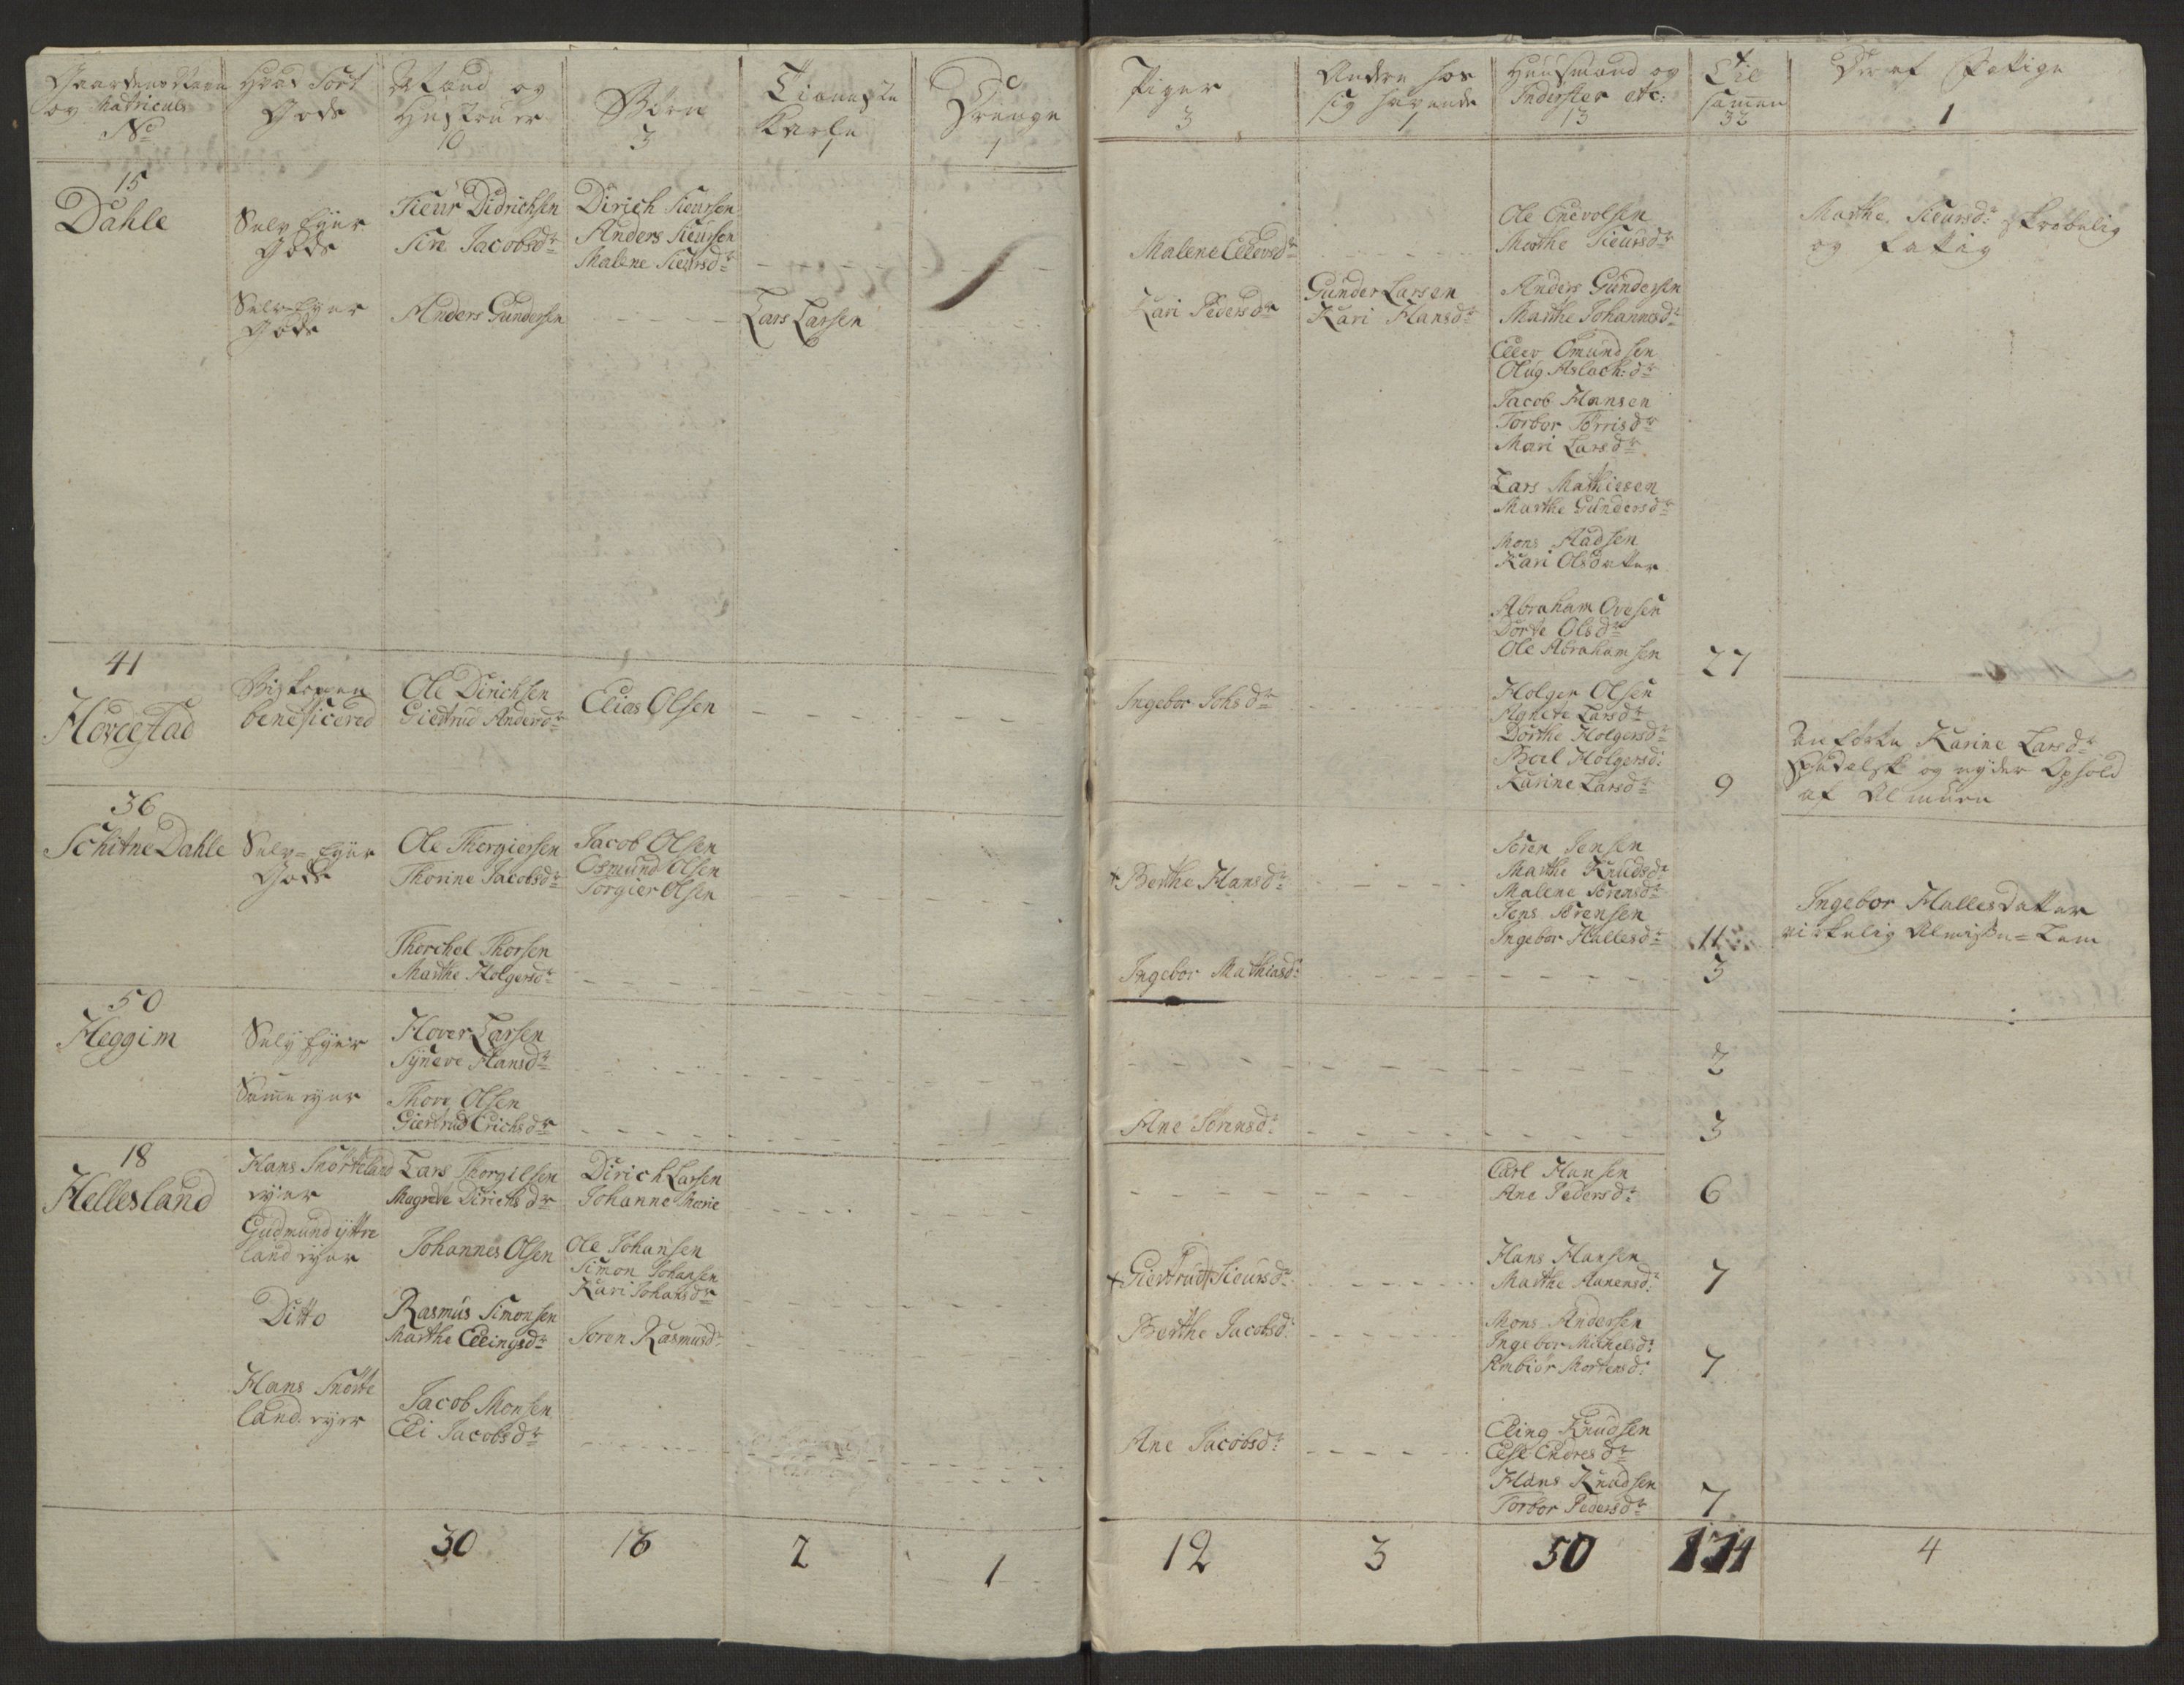 Gaardens Navn
og Matriculs
No
Hvad Sort
Gods
Mænd og
Hustruer
10
Børn
3
Tieneste
Karle
1
Drenge
1
Piger
3
Andre hos
sig havende
1
Huusmænd og
Inderster etc:
13
Til
samen
32
Der af Fattige
1
15
Dahle
Selv Eyer
Gods
Sieur Didrichsen
Sire Jacobsdr
Dirich Sieursen
Anders Sieursen
Malene Sieursdr
Malene Ellevsdr
Ole Enevolsen
Marthe Sieursdr
Marthe Sieursdr skrøbelig
og fattig
Selv-Eyer
Gods
Anders Gundersen
Lars Larsen
Kari Pedersdr
Gunder Larsen
Kari Hansdr
Anders Gundersen
Marthe Johannesdr
Ellev Omundsen
Olug Aslach:dr
Jacob Hansen
Torbor Torrisdr
Mari Larsdr
Lars Mathiesen
Marthe Gundersdr
Mons Hadsen
Kari Olsdatter
Abraham Ovesen
Dorte Olsdr
Ole Abrahamsen
27
41
Hovestad
beneficered
Ole Dirichsen
Giertrud Andersdr
Elias Olsen
Ingebor Johsdr
Holger Olsen
Agnete Larsdr
Dorthe Holgersdr
Boel Holgersd:
Karine Larsdr
9
Karine Larsdr
spedalsk og nyder Ophold
af Almuen
36
Schitne Dahle
Selv-Eyer
Gods
Ole Thorgiersen
Thorine Jacobsdr
Jacob Olsen
Osmund Olsen
Torgier Olsen
+ Berthe Hansdr
Søren Jensen
Marthe Knudsdr
Malene Sørensdr
Jens Sørensen
Ingebor Hallesdr
11
Ingebor Hallesdatter
virkelig Almisse-Lem
Thorchel Thorsen
Marthe Holgersdr
Ingebor Mathiasdr
3
50
Heggim
Selv Eyer
Hover Larsen
Syneve Hansdr
2
Samme eyer
Thore Olsen
Giertrud Erichsdr
Ane Sørensdr
3
18
Hellesland
Hans Snørteland
eyer
Lars Thorgilsen
Magrete Dirichsdr
Dirich Larsen
Johanne Marie
Carl Hansen
Ane Pedersdr
6
Gudmund Yttre
land eyer
Johannes Olsen
Ole Johansen
Simon Johansen
Kari Johansdr
+ Giertrud Sieursdr
Hans Hansen
Marthe Aanensdr
7
Ditto
Rasmus Simonsen
Marthe Ellingsdr
Soren Rasmusdr
Berthe Jacobsdr
Mons Andersen
Ingebor Michelsdr
Ambiør Mortensdr
7
Hans Snørte
land eyer
Jacob Monsen
Eli Jacobsdr
Ane Jacobsdr
Eling Knudsen
Else Endresdr
Hans Knudsen
Torbor Pedersdr
7
30
16
2
1
12
3
50
114
4